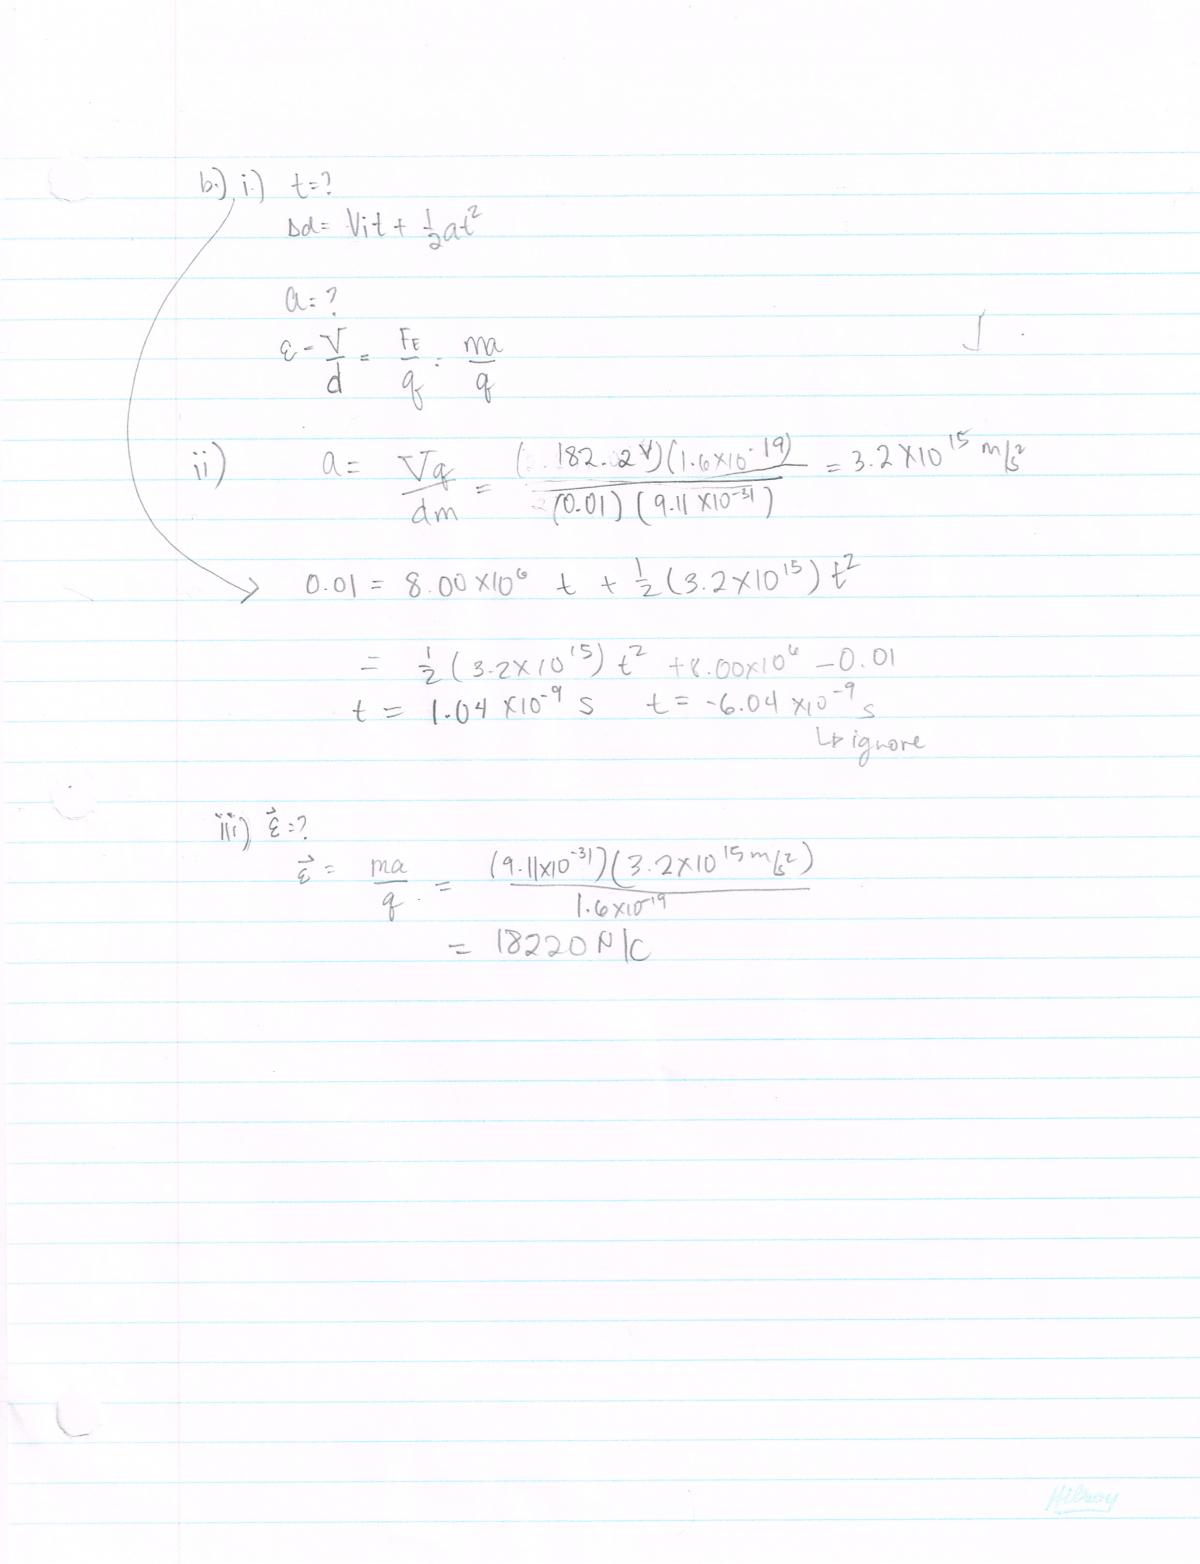 b.) i.) t=?
Δd = Vit + 1/2 at²
a = ?
ε = V/d = FE/q = ma/q
ii) a = Vq/dm = (182.02V)(1.6×10⁻¹⁹)/(0.01)(9.11×10⁻³¹) = 3.2×10¹⁵ m/s²
0.01 = 8.00×10⁶ t + 1/2 (3.2×10¹⁵) t²
= 1/2 (3.2×10¹⁵) t² + 8.00×10⁶ - 0.01
t = 1.04×10⁻⁹ s t = -6.04×10⁻⁹ s
↳ ignore
iii) ε⃗ = ?
ε⃗ = ma/q = (9.11×10⁻³¹)(3.2×10¹⁵ m/s²)/1.6×10⁻¹⁹
= 18220 N/C
Hilroy